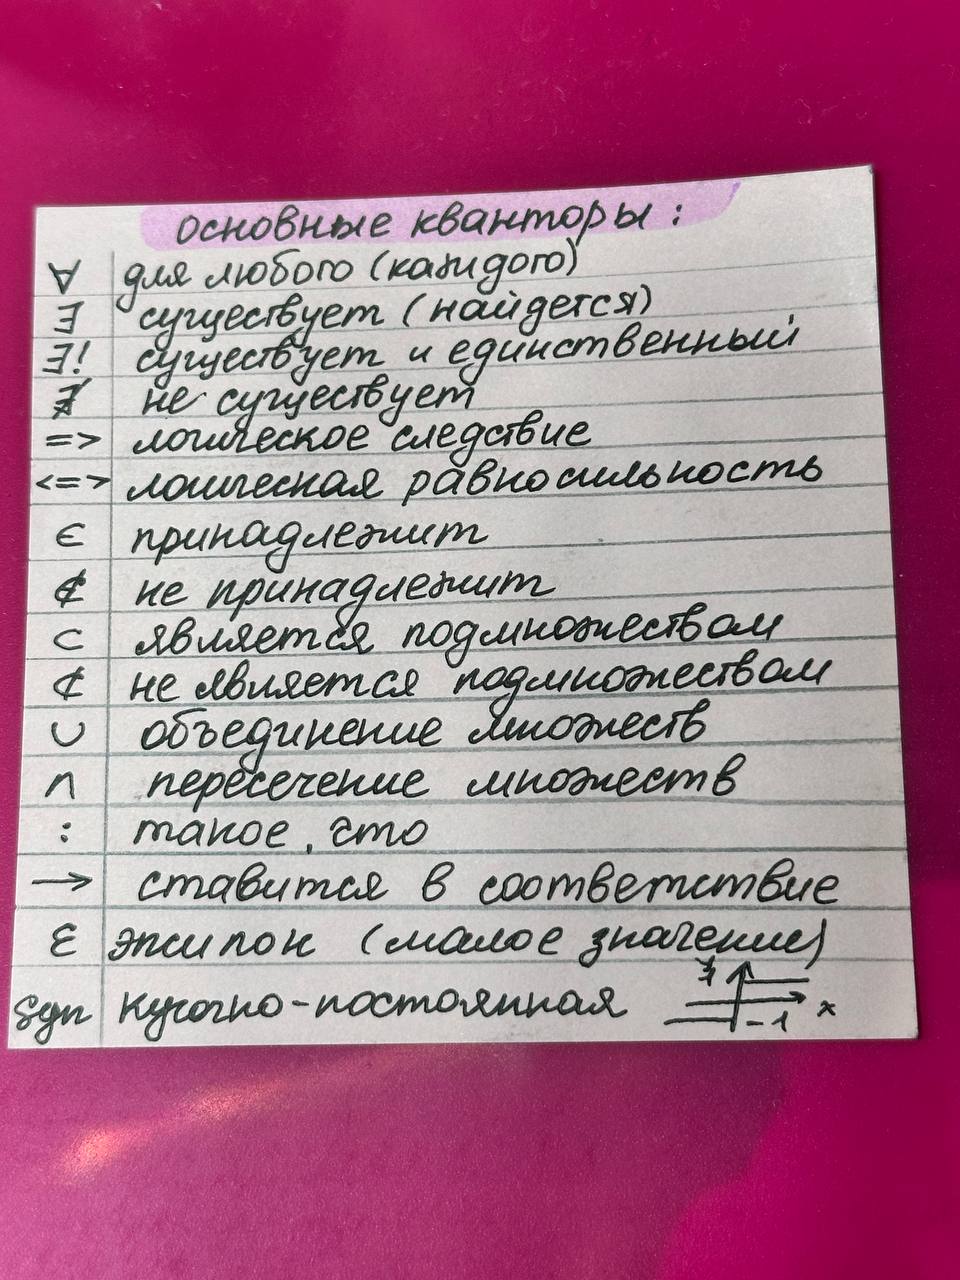 основные кванторы:
∀ для любого (каждого)
∃ существует (найдется)
∃! существует и единственный
∄ не существует
=> логическое следствие
<=> логическая равносильность
∈ принадлежит
∉ не принадлежит
⊂ является подмножеством
⊄ не является подмножеством
∪ объединение множеств
∩ пересечение множеств
: такое, что
→ ставится в соответствие
ε эпсилон (малое значение)
Sgn кусочно-постоянная 1 -1 x